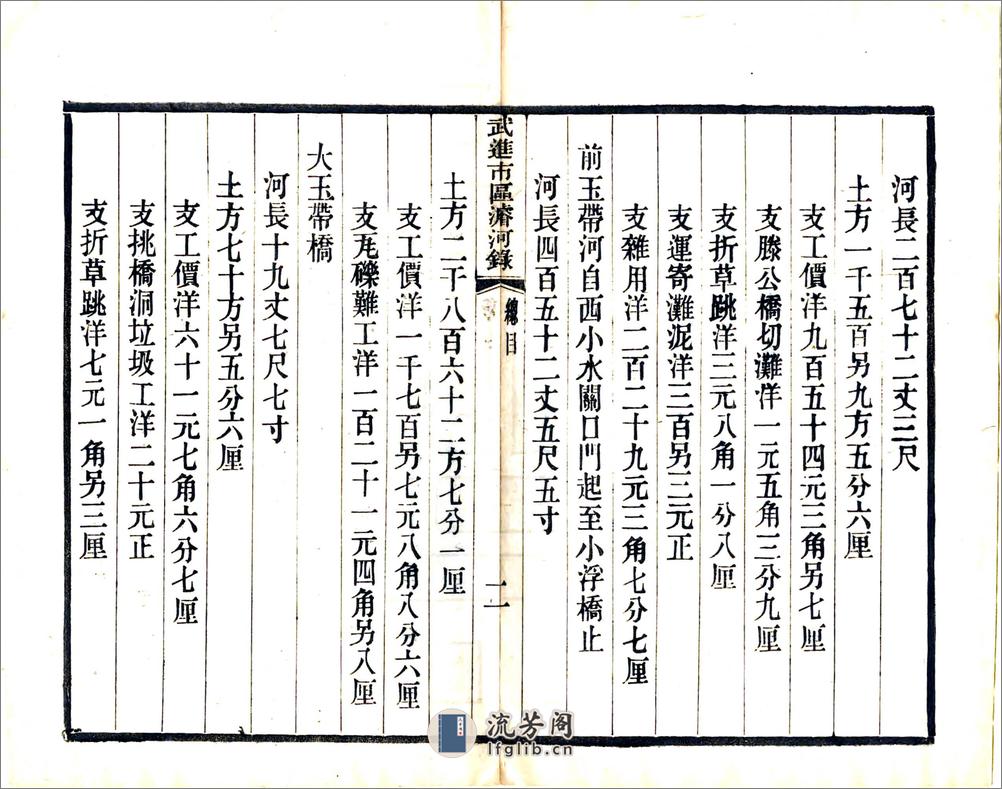 河長二百七十二丈三尺
土方一千五百另九方五分六厘
支工價洋九百五十四元三角另七厘
支滕公橋切灘洋一元五角三分九厘
支折草跳洋三元八角一分八厘
支運寄灘泥洋三百另三元正
支雜用洋二百二十九元三角七分七厘
前玉帶河自西小水關口門起至小浮橋止
河長四百五十二丈五尺五寸
武進市區濬河錄
總目
二
土方二千八百六十二方七分一厘
支工價洋一千七百另七元八角八分六厘
支瓦礫難工洋一百二十一元四角另八厘
大玉帶橋
河長十九丈七尺七寸
土方七十方另五分六厘
支工價洋六十一元七角六分七厘
支挑橋洞垃圾工洋二十元正
支折草跳洋七元一角另三厘
流芳阁
lfglib.cn